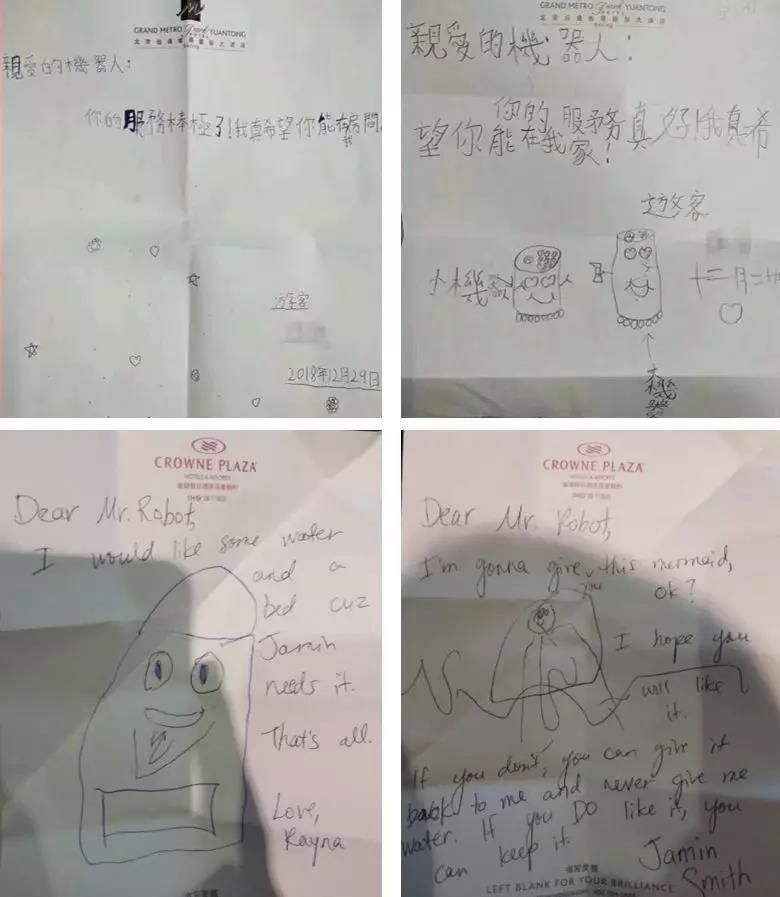 GRAND METRO Park YUANTONG
HOTEL
Beijing
親愛的機器人:
你的服務棒極了!我真希望你能在房間
我
遊客
2018年12月29日
GRAND METRO Park YUANTONG
HOTEL
Beijing
親愛的機器人:
你的服務真好!我真希
望你能在我家!
遊客
小機器人
十二月二十
大機器
CROWNE PLAZA
HOTELS & RESORTS
Dear Mr. Robot,
I would like some water
and a
bed cuz
Jamin
needs it.
That's all.
Love,
Rayna
CROWNE PLAZA
HOTELS & RESORTS
Dear Mr. Robot,
I'm gonna give you this mermaid,
ok?
I hope you
will like
it.
If you don't, you can give it
back to me and never give me
water. If you DO like it, you
can keep it.
Jamin
Smith
LEFT BLANK FOR YOUR BRILLIANCE